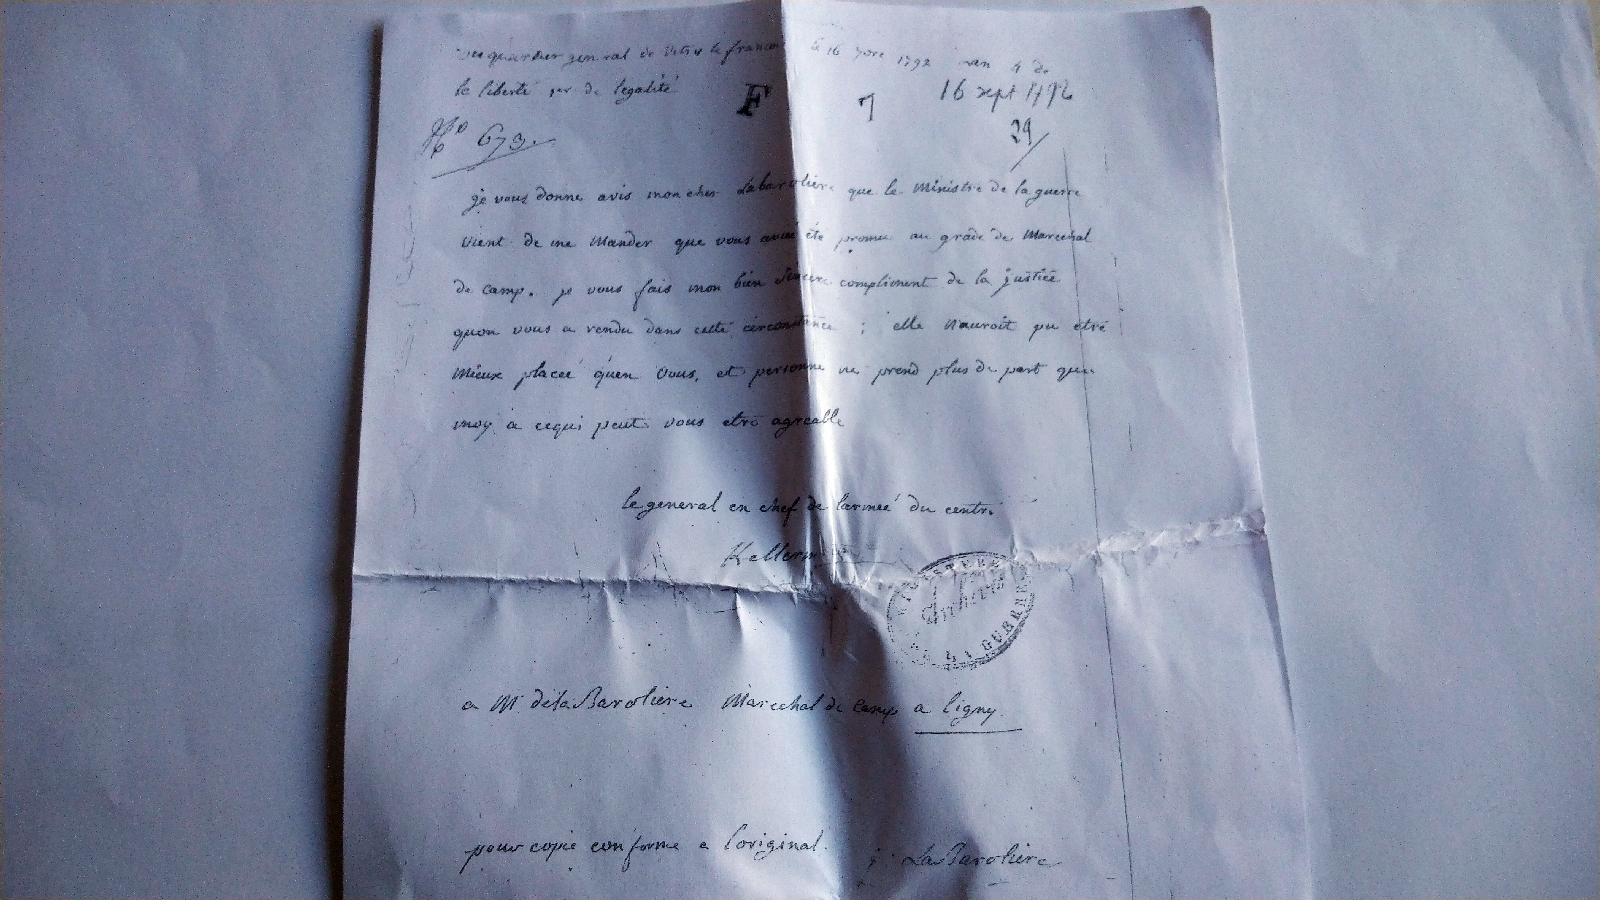 au quartier general de Vitri le francois le 16 7bre 1792 l'an 4 de
la liberté 1er de legalité
F 7 16 sept 1792
No 673. 29/
je vous donne avis mon cher Labaroliere que le Ministre de la guerre
vient de me Mander que vous aviez été promu au grade de Marechal
de camp. je vous fais mon bien sincere compliment de la justice
quon vous a rendu dans cette circonstance ; elle Nauroit pu etre
Mieux placée qu'en vous, et personne ne prend plus de part que
moy a cequi peut vous etre agreable
le general en chef de larmée du centre
Kellermann
MINISTERE DE LA GUERRE
Archives
a Mr dela Baroliere Marechal de Camp a ligny.
pour copie conforme a l'original.
LaBaroliere